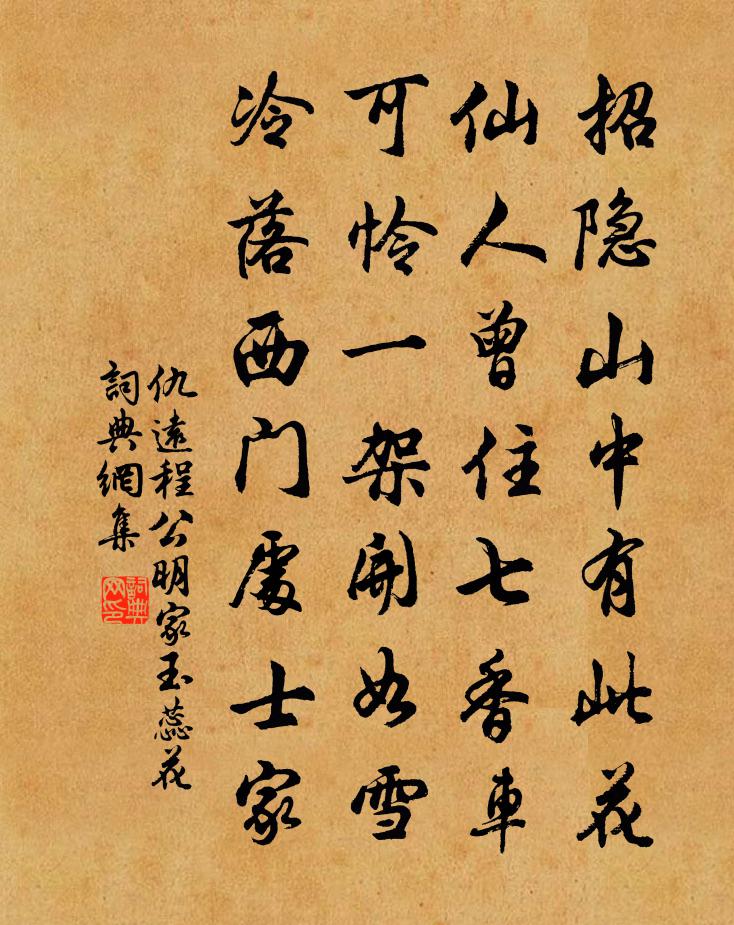 招隐山中有此花
仙人曾住七香車
可怜一架開如雪
冷落西门處士家
仇遠程公明家玉蕊花
詞典網集
詞典网印